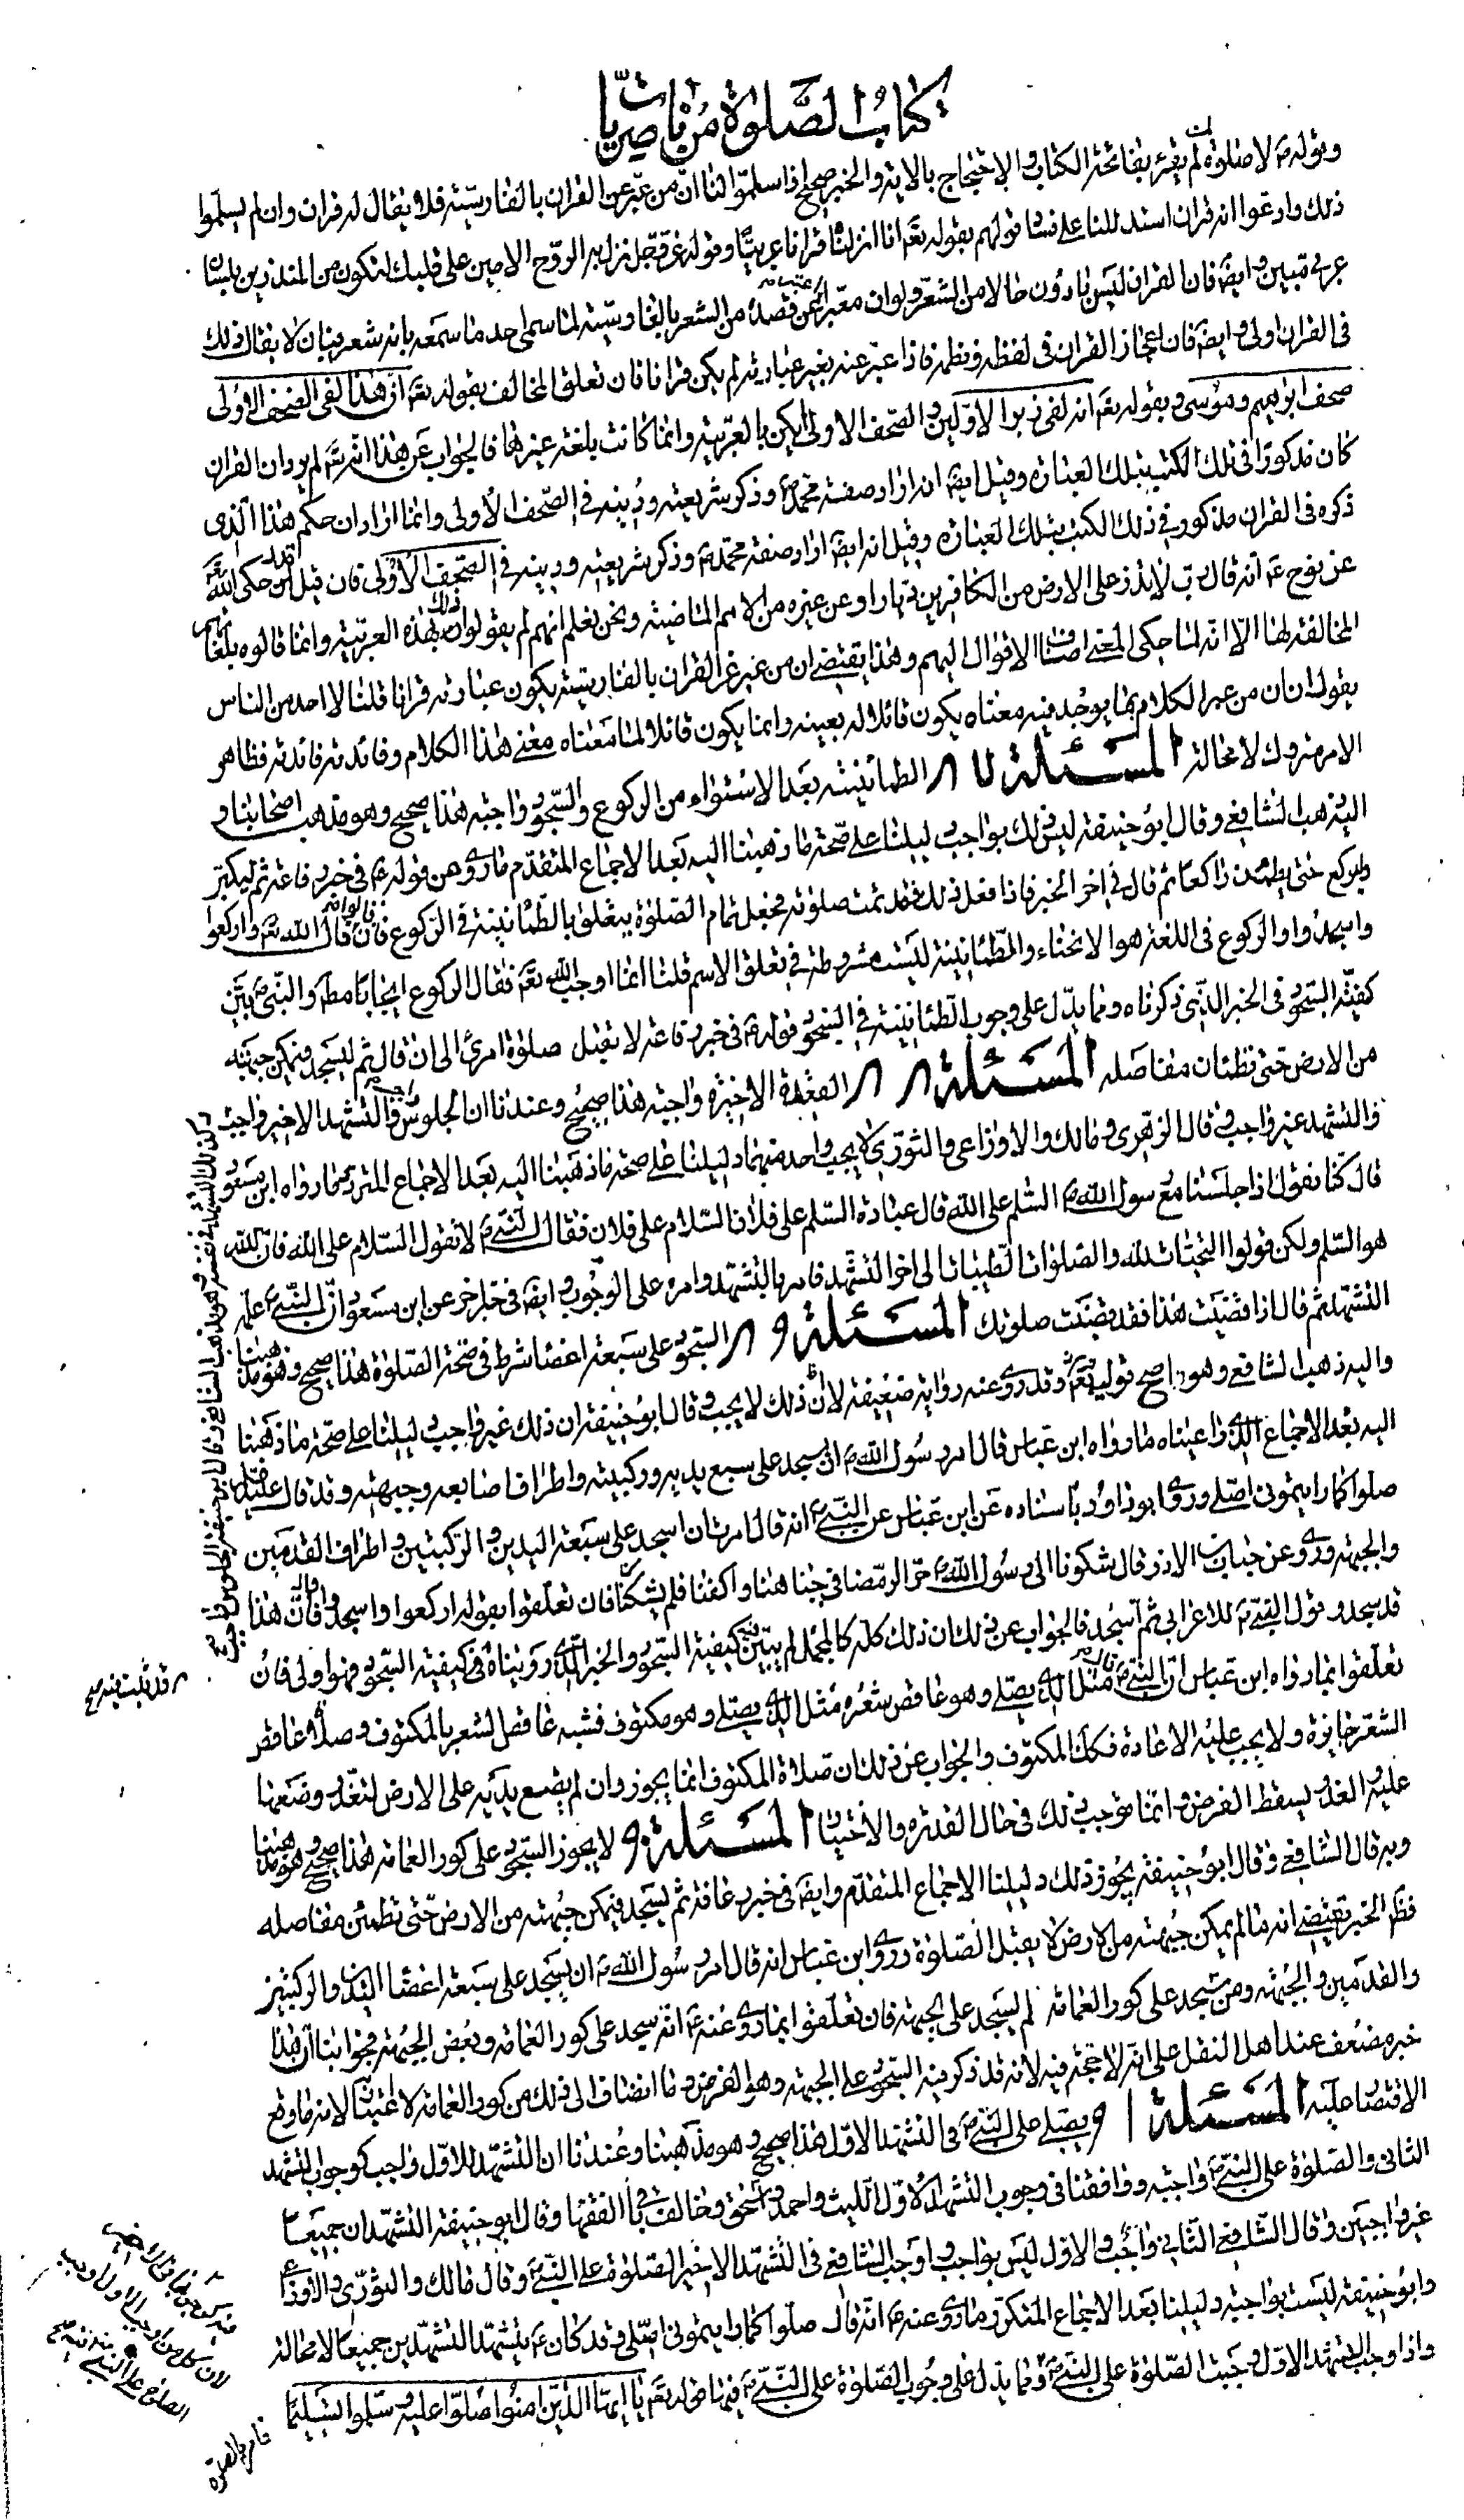 كتاب الصلوة من ناصريات
وقوله ع لا صلوة لمن لم يقرء بفاتحة الكتاب والاحتجاج بالاية والخبر صحيح اذا سلموا لنا ان من عبر عن القران بالفارسية فلا يقال له قران وان لم يسلموا
ذلك وادعوا انه قران استدللنا على فساد قولهم بقوله تع انا انزلناه قرانا عربيا وقوله عز وجل نزل به الروح الامين على قلبك لتكون من المنذرين بلسان
عربي مبين وايضا فان القران ليس بادون حالا من الشعر ولو ان معبرا عبر عن قصيدة من الشعر بالفارسية لما سمى احد ما سمعه بانه شعر فبان لا يقال ذلك
فى القران اولى وايضا فان اعجاز القران فى لفظه ونظمه فاذا عبر عنه بغير عبارته لم يكن قرانا فان تعلق المخالف بقوله تع ان هذا لفى الصحف الاولى
صحف ابرهيم وموسى وبقوله تع انه لفى زبر الاولين والصحف الاولى لم يكن بالعربية وانما كانت بلغة غيرها فالجواب عن هذا انه تع لم يرد ان القران
كان مذكورا فى تلك الكتب بتلك العبارة وقيل ايضا انه اراد صفة محمد ص وذكر شريعته ودينه فى الصحف الاولى وانما اراد ان حكم هذا الذى
ذكره فى القران مذكور فى ذلك الكتب بتلك العبارة وقيل انه ايضا اراد صفة محمد ص وذكر شريعته ودينه فى الصحف الاولى فان قيل اليس قد حكى الله تع
عن نوح ع انه قال رب لا تذر على الارض من الكافرين ديارا وعن غيره من الامم الماضية ونحن نعلم انهم لم يقولوا ذلك بهذه العربية وانما قالوه بلغاتهم
المخالفة لها الا انه لما حكى المعنى اضاف الاقوال اليهم وهذا يقتضى ان من عبر عن القران بالفارسية يكون عبارته قرانا قلنا لا احد من الناس
يقول ان من عبر الكلام بما يوجد فيه معناه يكون قائلا له بعينه وانما يكون قائلا لما معناه معنى هذا الكلام وفائدته فائدته فظاهر
الامر متروك لا محالة المسئلة ٨٧ الطمانينة بعد الاستواء من الركوع والسجود واجبة هذا صحيح وهو مذهب اصحابنا و
اليه ذهب الشافعى وقال ابو حنيفة ليس ذلك بواجب دليلنا على صحة ما ذهبنا اليه بعد الاجماع المتقدم ما روى من قوله ع فى خبر رفاعة ثم ليكبر
وليركع حتى يطمئن راكعا ثم قال فى اخر الخبر فاذا فعل ذلك فقد تمت صلوته فجعل تمام الصلوة يتعلق بالطمانينة فى الركوع فان قالوا قال الله تع واركعوا
واسجدوا والركوع فى اللغة هو الانحناء والطمانينة ليست مشروطة فى تعلق الاسم قلنا انما اوجب الله تع فقال الركوع ايجابا مطلقا والنبى ص بين
كيفية السجود فى الخبر الذى ذكرناه ومما يدل على وجوب الطمانينة فى السجود قوله ع فى خبر رفاعة لا تقبل صلوة امرئ الى ان قال ثم ليسجد فيمكن جبهته
من الارض حتى تطمئن مفاصله المسئلة ٨٨ القعدة الاخيرة واجبة هذا صحيح وعندنا ان الجلوس والتشهد الاخير واجب
والتشهد غير واجب وقال الزهرى ومالك والاوزاعى والثورى لا يجب واحد منهما دليلنا على صحة ما ذهبنا اليه بعد الاجماع المتردد ما رواه ابن مسعود
قال كنا نقول اذا جلسنا مع رسول الله ص السلم على الله قال عبادة السلم على فلان السلام على فلان فقال النبى ص لا تقول السلام على الله فان الله
هو السلم ولكن قولوا التحيات لله والصلوات الطيبات الى اخر التشهد فامر بالتشهد وامره على الوجوب وايضا فى خبر اخر عن ابن مسعود ان النبى ص علمه
التشهد ثم قال اذا قضيت هذا فقد قضيت صلوتك المسئلة ٨٩ السجود على سبعة اعضا شرط فى صحة الصلوة هذا صحيح وهو مذهبنا
واليه ذهب الشافعى وهو اصح قوليه وقد روى عنه رواية ضعيفة لان ذلك لا يجب وقال ابو حنيفة ان ذلك غير واجب دليلنا على صحة ما ذهبنا
اليه بعد الاجماع الذى راعيناه ما رواه ابن عباس قال امر رسول الله ص ان يسجد على سبع يديه وركبتيه واطراف اصابعه وجبهته وقد قال عليه السلم
صلوا كما رايتمونى اصلى وروى ابو داود باسناده عن ابن عباس عن النبى ص انه قال امرت ان اسجد على سبعة اليدين والركبتين واطراف القدمين
والجبهة وروى عن خباب بن الارت قال شكونا الى رسول الله ص حر الرمضا فى جباهنا واكفنا فلم يشكنا فان تعلقوا بقوله اركعوا واسجدوا قال فان هذا
قد سجد وقول النبى ص للاعرابى ثم اسجد فالجواب عن ذلك ان ذلك كله كالمجمل لم يبين فيه كيفية السجود والخبر الذى رويناه فى كيفية السجود فهو اولى فان
تعلقوا بما رواه ابن عباس ان النبى ص قال مثل الذى يصلى وهو عاقص شعره مثل الذى يصلى وهو مكتوف فشبه عاقص الشعر بالمكتوف وصلاة عاقص
الشعر جايزة ولا يجب عليه الاعادة فكذا المكتوف والجواب عن ذلك ان صلاة المكتوف انما يجوز وان لم يضع يديه على الارض لتعذر وضعها
عليه العذر يسقط الفرض وانما نوجب ذلك فى حال القدرة والاختيار المسئلة ٩٠ لا يجوز السجود على كور العمامة هذا صحيح وهو مذهبنا
وبه قال الشافعى وقال ابو حنيفة يجوز ذلك دليلنا الاجماع المتقدم وايضا فى خبر رفاعة ثم يسجد فيمكن جبهته من الارض حتى تطمئن مفاصله
فظ الخبر يقتضى انه ما لم يمكن جبهته من الارض لا يقبل الصلوة وروى ابن عباس انه قال امر رسول الله ص ان يسجد على سبعة اعضا اليدين والركبتين
والقدمين والجبهة ومن سجد على كور العمامة لم يسجد على الجبهة فان تعلقوا بما روى عنه ع انه سجد على كور العمامة وبعض الجبهة فجوابنا ان هذا
خبر مضعف عند اهل النقل على انه لا حجة فيه لانه قد ذكر فيه السجود على الجبهة وهو الفرض وما انضاف الى ذلك من كور العمامة لا اعتبار به لانه ما وقع
الاقتصار عليه المسئلة ٩١ ويصلى على النبى ص فى التشهد الاول هذا صحيح وهو مذهبنا وعندنا ان التشهد الاول واجب كوجوب التشهد
الثانى والصلوة على النبى ص واجبة ووافقنا فى وجوب التشهد الاول الليث واحمد واسحق وخالف باقى الفقها وقال ابو حنيفة التشهدان جميعا
غير واجبين وقال الشافعى الثانى واجب والاول ليس بواجب واوجب الشافعى فى التشهد الاخير الصلوة على النبى ص وقال مالك والثورى والاوزاعى
وابو حنيفة ليست بواجبة دليلنا بعد الاجماع المتكرر ما روى عنه ع انه قال صلوا كما رايتمونى اصلى وقد كان ع يتشهد التشهدين جميعا لا محالة
واذا وجب التشهد الاول وجبت الصلوة على النبى ص ومما يدل على وجوب الصلوة على النبى ص فيها قوله تع يا ايها الذين امنوا صلوا عليه وسلموا تسليما
فامر بالصلوة